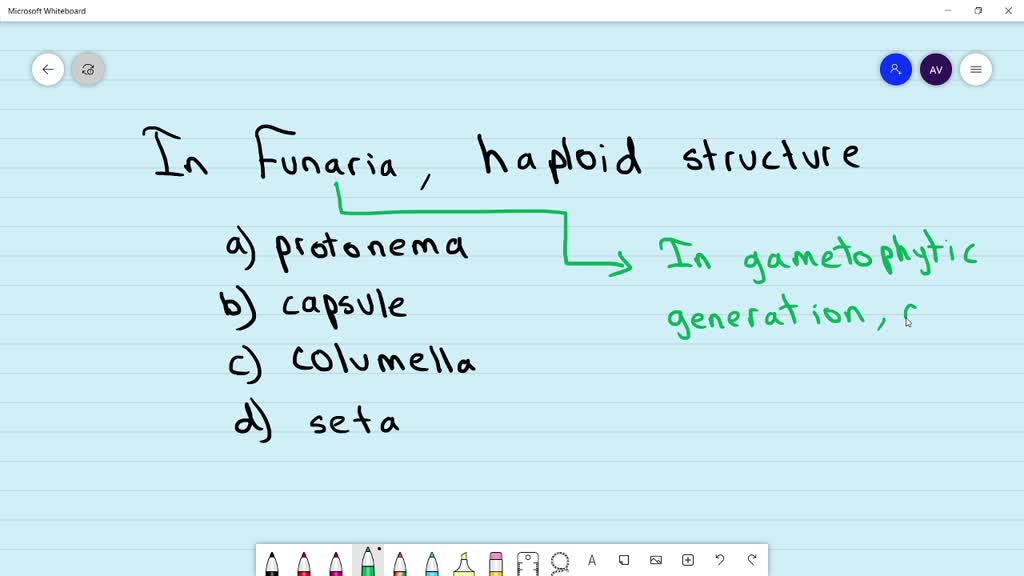 Microsoft Whiteboard
AV
In Funaria, haploid structure
a) protonema
b) capsule
c) columella
d) seta
In gametophytic
generation,
A